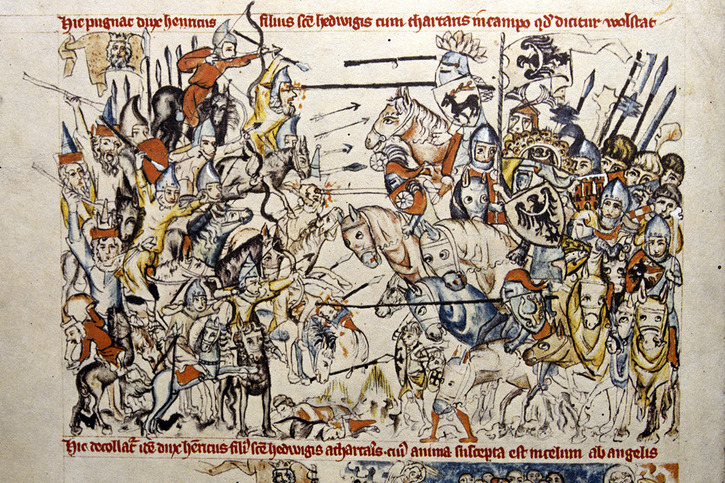 Hic pugnat dux henricus filius sce hedwigis cum thartaris in campo qd dicitur wolstat
Hic decollatr idē dux henricus filiꝰ sce hedwigis a thartaris ciꝰ anima suscepta est in celum ab angelis